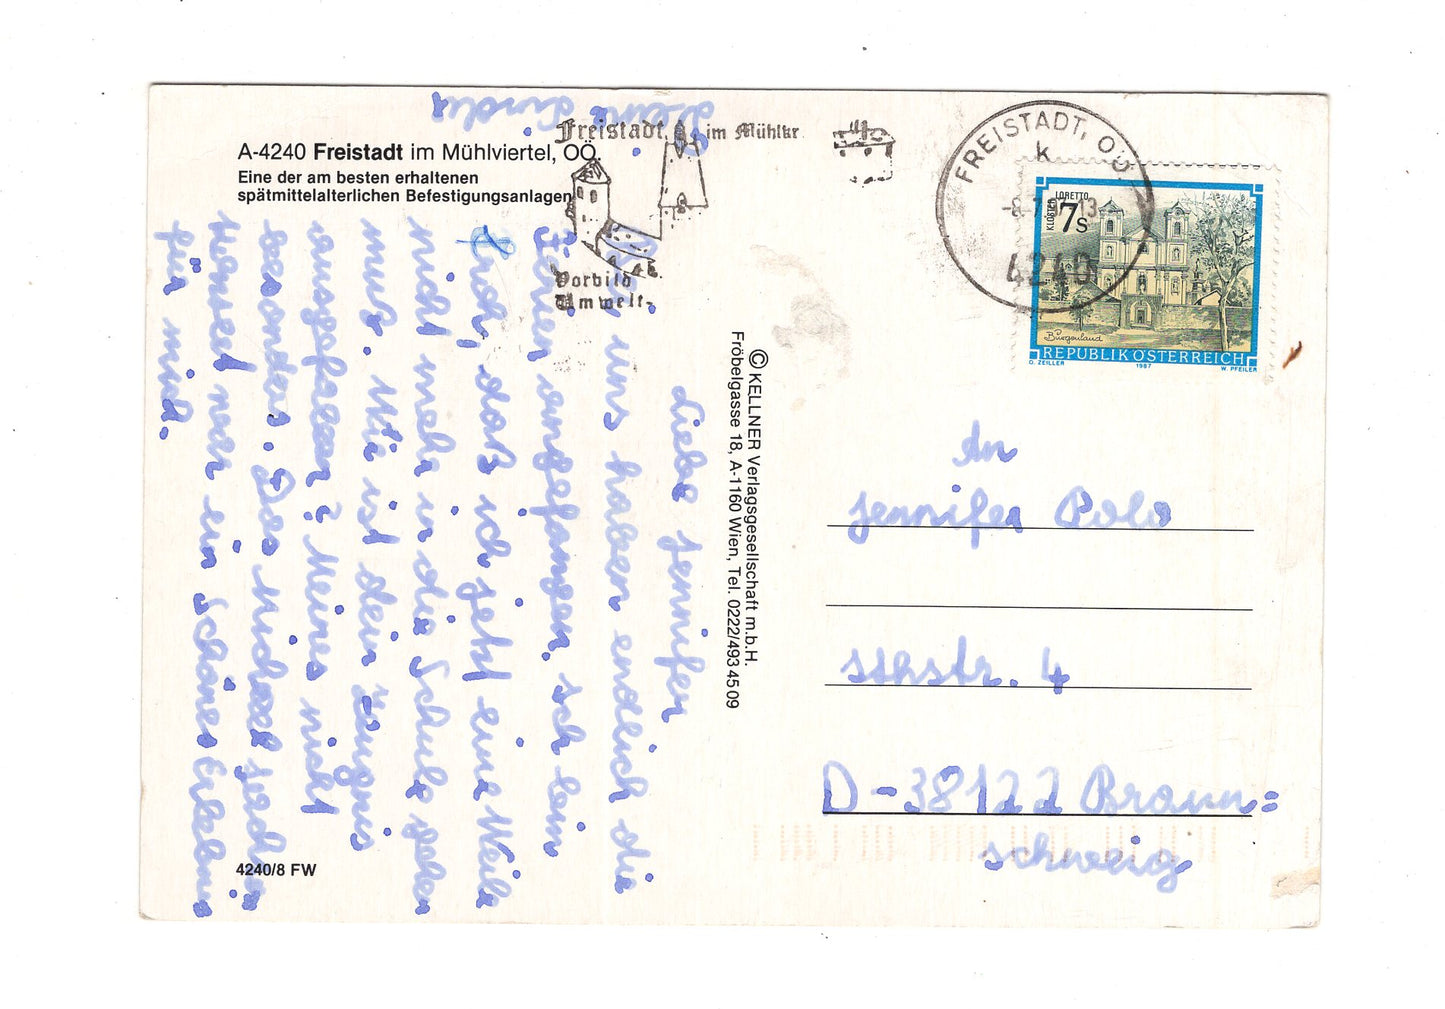 A-4240 Freistadt im Mühlviertel, OÖ.
Eine der am besten erhaltenen
spätmittelalterlichen Befestigungsanlagen
Freistadt im Mühlkr
Vorbild
Umwelt-
FREISTADT, OÖ
k
4240
KLOSTER LORETTO
7s
Burgenland
REPUBLIK ÖSTERREICH
D. ZEILLER 1987 W. PFEILER
Liebe Jennifer
uns haben endlich die
Ferien angefangen. Ich bin
froh, daß ich jetzt eine Weile
nicht mehr in die Schule gehen
muß. Wie ist dein Zeugnis
ausgefallen? Meines nicht
besonders. Das
noch ein schönes Erlebnis
für mich.
Deine
© KELLNER Verlagsgesellschaft m.b.H.
Fröbelgasse 18, A-1160 Wien, Tel. 0222/493 45 09
An
Jennifer Polo
str. 4
D-38122 Braun=
schweig
4240/8 FW